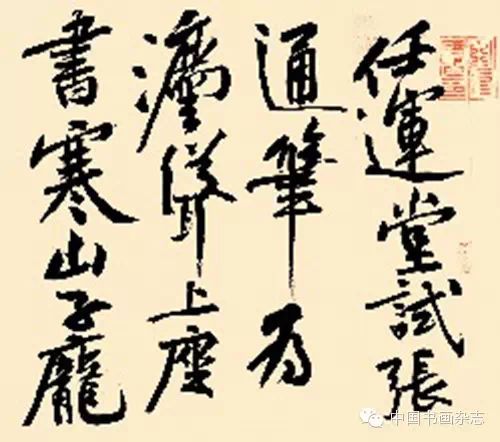 任運堂試張
通筆為
灋聳上座
書寒山子龐
中国书画杂志